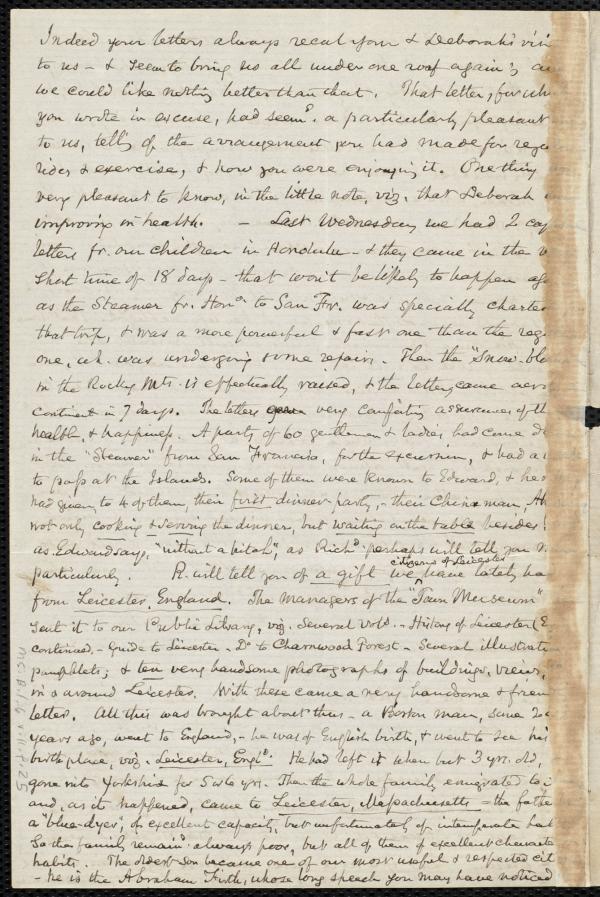 Indeed your letters always recal your & Deborah's visi
to us - & seem to bring us all under one roof again; a
we could like nothing better than that. That letter, for wh
you wrote in excuse, had seemd. a particularly pleasant
to us, tellg of the arrangement you had made for reg
rides & exercise, & how you were enjoying it. One thing
very pleasant to know, in the little note, viz. that Deborah
improving in health. - Last Wednesday we had 2 cap
letters fr. our children in Honolulu - & they came in the v
short time of 18 days - that won't be likely to happen aga
as the Steamer fr. Hono. to San Fr. was specially charte
that trip, & was a more powerful & fast one than the reg
one, wh. was undergoing some repairs. Then the "Snow-blo
in the Rocky Mts. is effectually raised, & the letters came acro
continent in 7 days. The letters very comforting assurances of th
health, & happiness. A party of 60 gentlemen & ladies had come d
in the "Steamer" from San Francisco, for the excursion, & had a
to pass at the Islands. Some of them were known to Edward, & he
had given to 4 of them, their first dinner party, - their China man, Ah
not only cooking & serving the dinner, but waiting on the table besides
as Edward says, "without a hitch", as Richd. perhaps will tell you m
particularly. R. will tell you of a gift we, citizens of Leicester have lately ha
from Leicester, England. The Managers of the "Town Museum"
sent it to our Public Library, viz. Several Vols. - History of Leicester (E
continued. - Guide to Leicester - Do. to Charnwood Forest - Several illustrat
pamphlets; & ten very handsome photographs of buildings, views,
in & around Leicester. With these came a very handsome & frien
letter. All this was brought about thus - a Boston man, some 2
years ago, went to England, - he was of English birth, & went to see his
birth place, viz. Leicester, Engld. He had left it when but 3 yrs. old,
gone into Yorkshire for 5 or 6 yrs. Then the whole family emigrated to
and, as it happened, came to Leicester, Massachusetts - the fathe
a "blue-dyer", of excellent capacity, but unfortunately of intemperate hab
So the family remaind. always poor, but all of them of excellent characte
habits. The oldest son became one of our most useful & respected cit
- he is the Abraham Firth, whose long speech you may have noticed